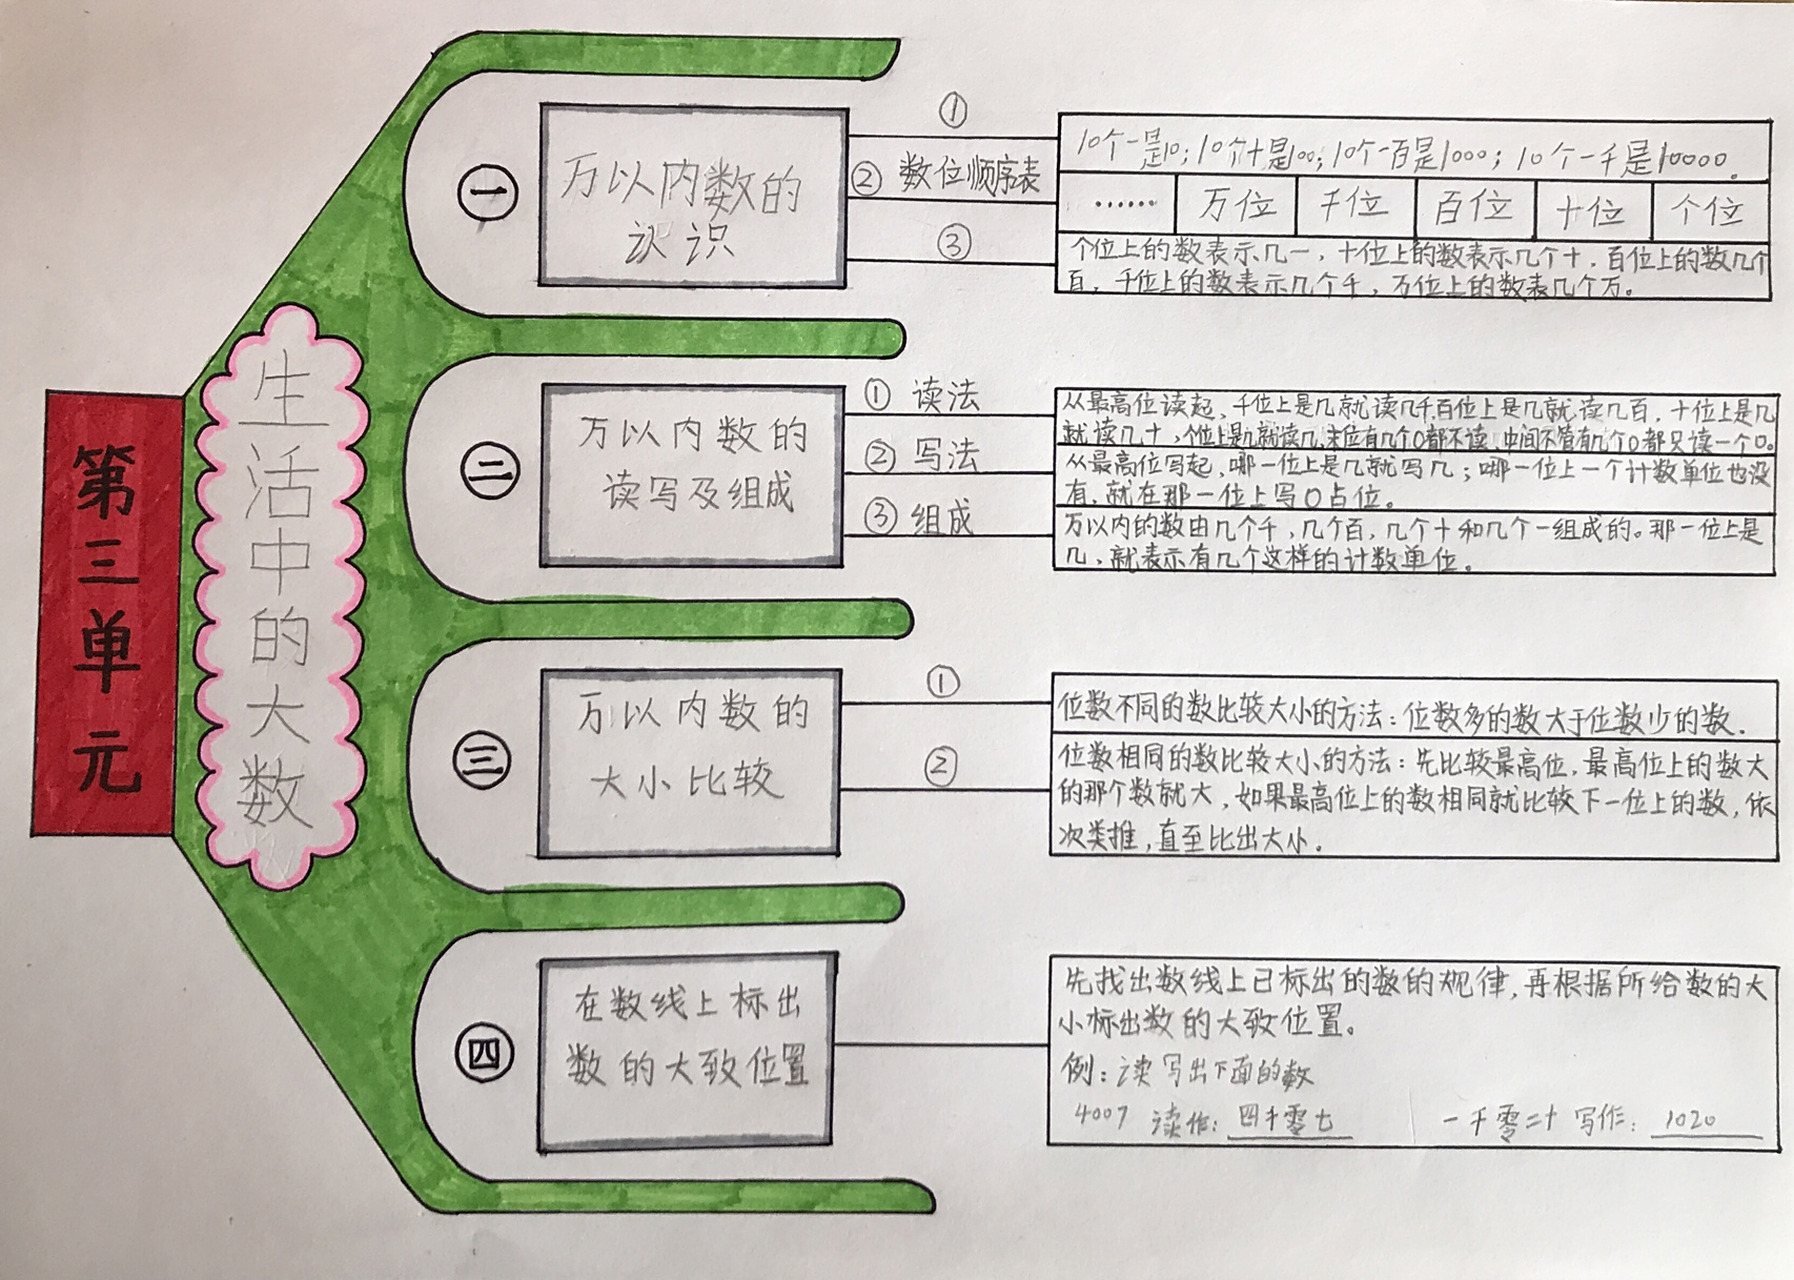 第三单元
生活中的大数
一
万以内数的
认识
①
10个一是10;10个十是100;10个一百是1000;10个一千是10000。
② 数位顺序表
…… 万位 千位 百位 十位 个位
③
个位上的数表示几一,十位上的数表示几个十,百位上的数几个
百,千位上的数表示几个千,万位上的数表几个万。
二
万以内数的
读写及组成
① 读法
从最高位读起,千位上是几就读几千,百位上是几就读几百,十位上是几
就读几十,个位上是几就读几,末位有几个0都不读,中间不管有几个0都只读一个0。
② 写法
从最高位写起,哪一位上是几就写几;哪一位上一个计数单位也没
有,就在那一位上写0占位。
③ 组成
万以内的数由几个千,几个百,几个十和几个一组成的。那一位上是
几,就表示有几个这样的计数单位。
三
万以内数的
大小比较
①
位数不同的数比较大小的方法:位数多的数大于位数少的数.
②
位数相同的数比较大小的方法:先比较最高位,最高位上的数大
的那个数就大,如果最高位上的数相同就比较下一位上的数,依
次类推,直至比出大小.
四
在数线上标出
数的大致位置
先找出数线上已标出的数的规律,再根据所给数的大
小标出数的大致位置。
例:读写出下面的数
4007 读作:四千零七 一千零二十 写作:1020